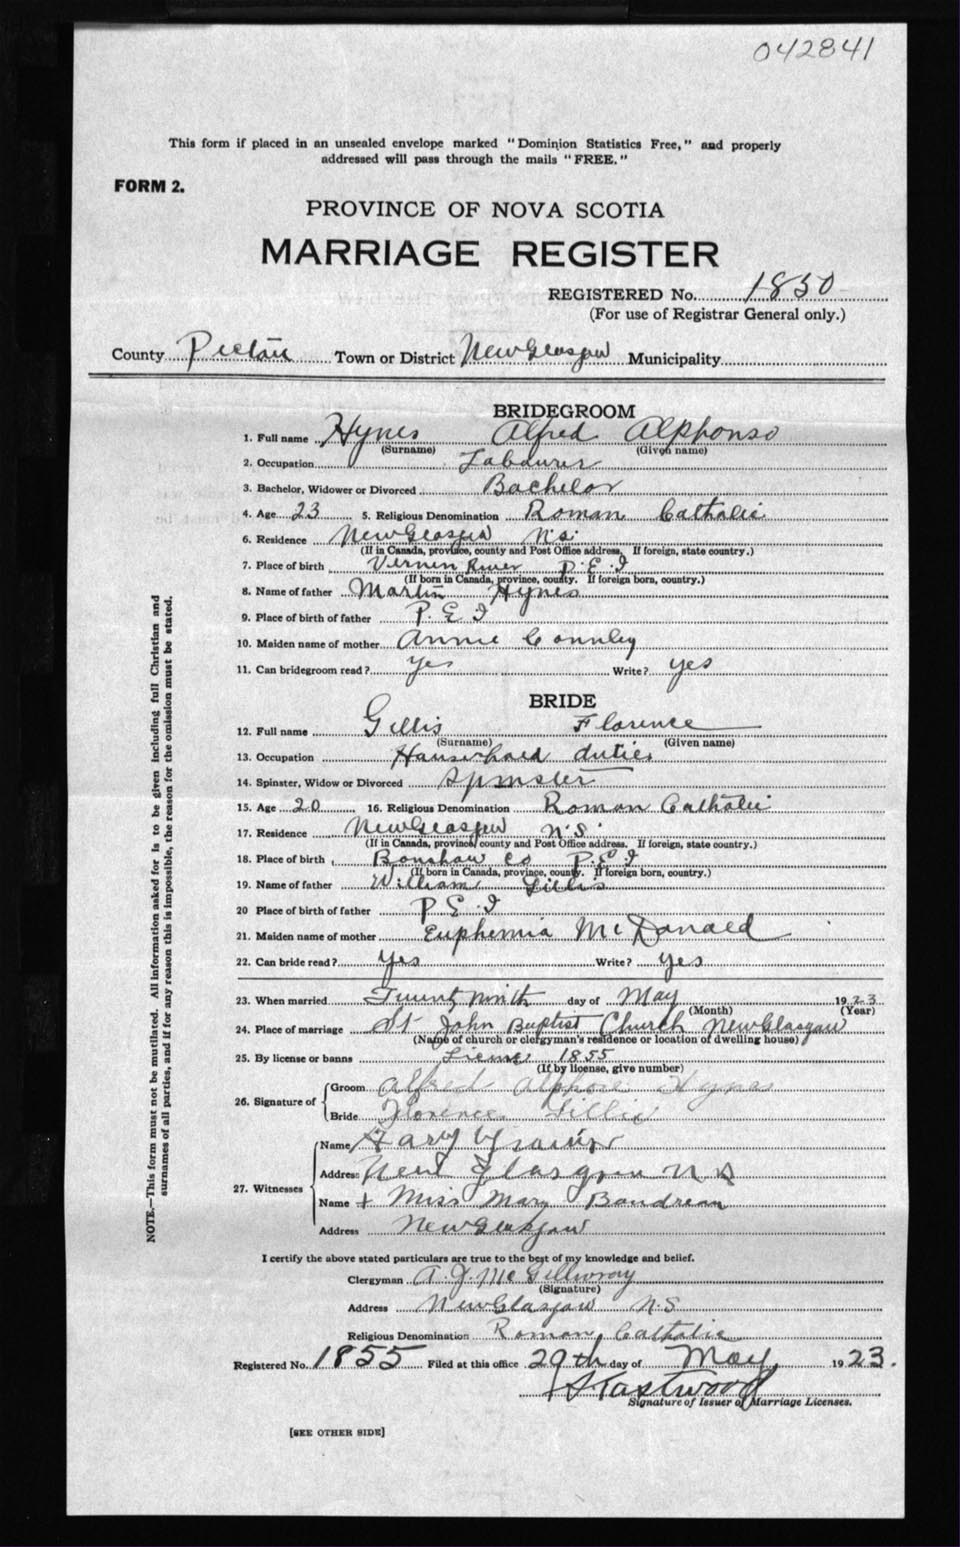 042841
This form if placed in an unsealed envelope marked "Dominion Statistics Free," and properly
addressed will pass through the mails "FREE."
FORM 2.
PROVINCE OF NOVA SCOTIA
MARRIAGE REGISTER
REGISTERED No. 1850
(For use of Registrar General only.)
County Pictou Town or District New Glasgow Municipality
BRIDEGROOM
1. Full name Hynes Alfred Alphonso
(Surname) (Given name)
2. Occupation Labourer
3. Bachelor, Widower or Divorced Bachelor
4. Age 23 5. Religious Denomination Roman Catholic
6. Residence New Glasgow N.S.
(If in Canada, province, county and Post Office address. If foreign, state country.)
7. Place of birth Vernon River P.E.I
(If born in Canada, province, county. If foreign born, country.)
8. Name of father Martin Hynes
9. Place of birth of father P.E.I
10. Maiden name of mother Annie Connley
11. Can bridegroom read? yes Write? yes
BRIDE
12. Full name Gillis Florence
(Surname) (Given name)
13. Occupation Household duties
14. Spinster, Widow or Divorced Spinster
15. Age 20 16. Religious Denomination Roman Catholic
17. Residence New Glasgow N.S.
(If in Canada, province, county and Post Office address. If foreign, state country.)
18. Place of birth Bonshaw Co P.E.I
(If born in Canada, province, county. If foreign born, country.)
19. Name of father William Gillis
20 Place of birth of father P.E.I
21. Maiden name of mother Euphemia McDonald
22. Can bride read? yes Write? yes
23. When married Twenty ninth day of May 1923
(Month) (Year)
24. Place of marriage St John Baptist Church New Glasgow
(Name of church or clergyman's residence or location of dwelling house)
25. By license or banns 1855
(If by license, give number)
26. Signature of
Groom Alfred Hynes
Bride Florence Gillis
27. Witnesses
Name
Address New Glasgow N S
Name + Miss Mary Boudreau
Address New Glasgow
I certify the above stated particulars are true to the best of my knowledge and belief.
Clergyman A. J. McGillivray
(Signature)
Address New Glasgow N.S
Religious Denomination Roman Catholic
Registered No. 1855 Filed at this office 29th day of May 1923.
Eastwood
Signature of Issuer of Marriage Licenses.
[SEE OTHER SIDE]
NOTE.—This form must not be mutilated. All information asked for is to be given including full Christian and
surnames of all parties, and if for any reason this is impossible, the reason for the omission must be stated.